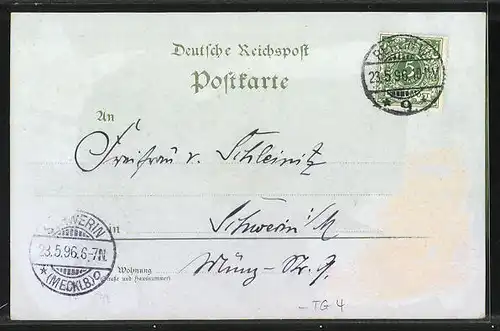 Deutsche Reichspost
Postkarte
5
23.5.96.
* 9 *
An
Freifrau v. Schleinitz
in
Schwerin i/M
SCHWERIN
23.5.96.6-7N.
* (MECKLB.)
Wohnung
(Straße und Hausnummer)
Münz-Str. 9.
- TG 4